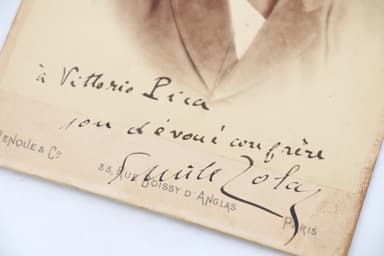 à Vittorio Pica
son dévoué confrère
Emile Zola
PENOUE & Co.
35, RUE BOISSY D'ANGLAS
PARIS